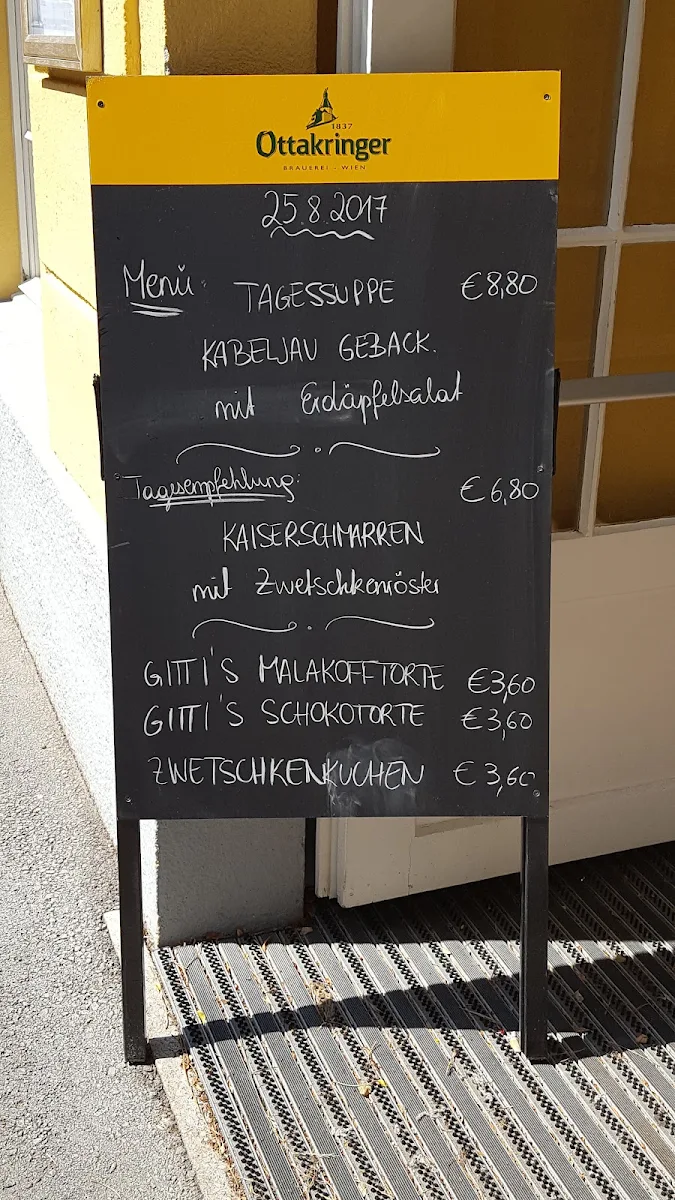 1837
Ottakringer
BRAUEREI - WIEN
25.8.2017
Menü: TAGESSUPPE €8,80
KABELJAU GEBACK.
mit Erdäpfelsalat
Tagesempfehlung: €6,80
KAISERSCHMARREN
mit Zwetschkenröster
GITTI'S MALAKOFFTORTE €3,60
GITTI'S SCHOKOTORTE €3,60
ZWETSCHKENKUCHEN €3,60